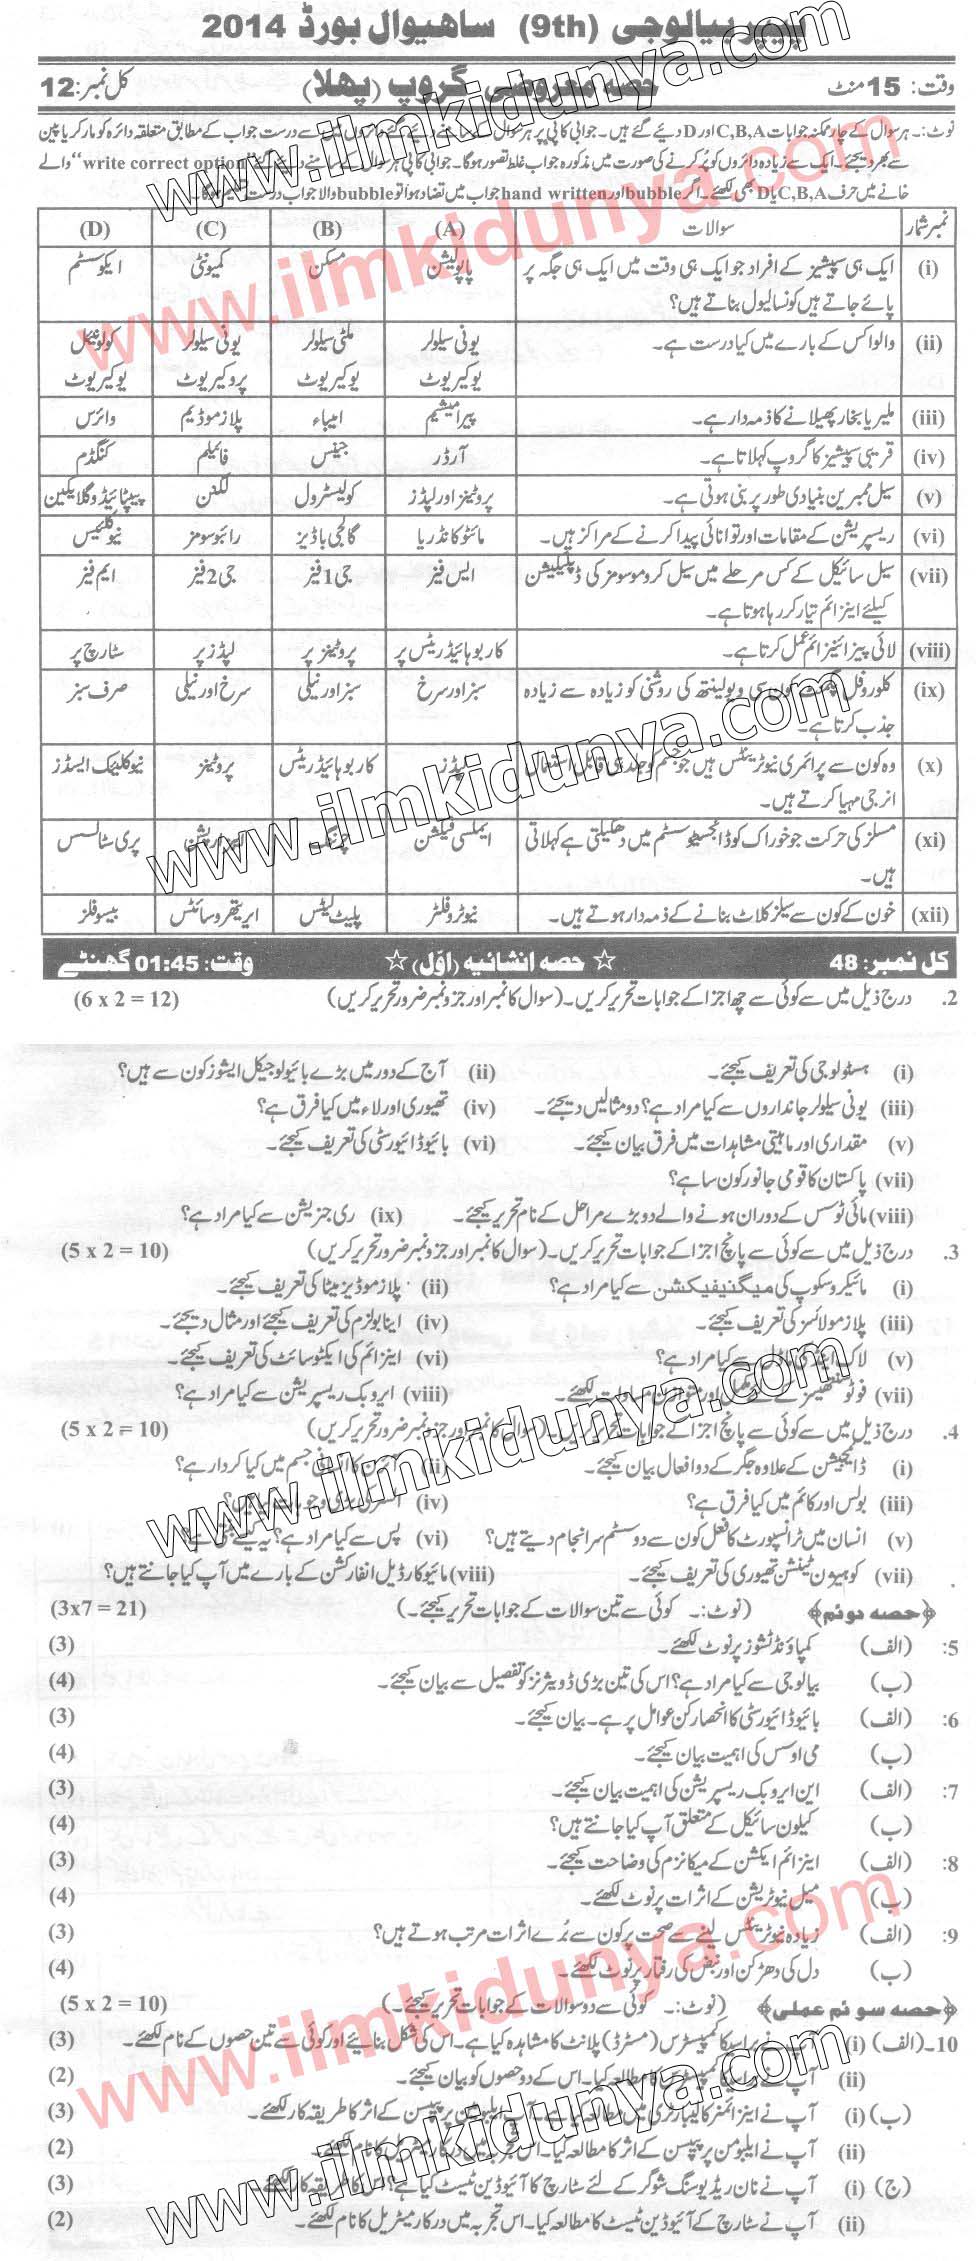 پیپر بیالوجی (9th) ساہیوال بورڈ 2014
وقت: 15 منٹ حصہ معروضی گروپ (پہلا) کل نمبر: 12
نوٹ:۔ ہر سوال کے چار ممکنہ جوابات C,B,A اور D دیے گئے ہیں۔ جوابی کاپی پر ہر سوال کے سامنے دیے گئے دائروں میں سے درست جواب کے مطابق متعلقہ دائرہ کو مارکر یا پین
سے بھر دیجئے۔ ایک سے زیادہ دائروں کو پُر کرنے کی صورت میں مذکورہ جواب غلط تصور ہوگا۔ جوابی کاپی پر ہر سوال کے سامنے دیے گئے "write correct option" والے
خانے میں حرف C,B,A یا D بھی لکھئے۔ اگر bubble اور hand written جواب میں تضاد ہوا تو bubble والا جواب درست تسلیم ہوگا۔
نمبر شمار سوالات (A) (B) (C) (D)
(i) ایک ہی سپیشیز کے افراد جو ایک ہی وقت میں ایک ہی جگہ پر پائے جاتے ہیں کونسا لیول بناتے ہیں؟ پاپولیشن مسکن کمیونٹی ایکوسسٹم
(ii) والواکس کے بارے میں کیا درست ہے۔ یونی سیلولر یوکیریوٹ ملٹی سیلولر یوکیریوٹ یونی سیلولر پروکیریوٹ کولونیئل یوکیریوٹ
(iii) ملیریا بخار پھیلانے کا ذمہ دار ہے۔ پیرامیشیم امیباء پلازموڈیم وائرس
(iv) قریبی سپیشیز کا گروپ کہلاتا ہے۔ آرڈر جینس فائیلم کنگڈم
(v) سیل ممبرین بنیادی طور پر بنی ہوتی ہے۔ پروٹینز اور لپڈز کولیسٹرول لگنن پیپٹائیڈوگلائیکین
(vi) ریسپریشن کے مقامات اور توانائی پیدا کرنے کے مراکز ہیں۔ مائٹوکانڈریا گالجی باڈیز رائبوسومز نیوکلئیس
(vii) سیل سائیکل کے کس مرحلے میں سیل کروموسومز کی ڈپلیکیشن کیلئے اینزائم تیار کر رہا ہوتا ہے۔ ایس فیز جی 1 فیز جی 2 فیز ایم فیز
(viii) لائی پیز اینزائم عمل کرتا ہے۔ کاربوہائیڈریٹس پر پروٹینز پر لپڈز پر سٹارچ پر
(ix) کلوروفل پگمنٹ کون سی ویولینتھ کی روشنی کو زیادہ سے زیادہ جذب کرتا ہے۔ سبز اور سرخ سبز اور نیلی سرخ اور نیلی صرف سبز
(x) وہ کون سے پرائمری نیوٹرینٹس ہیں جو جسم کو جلد ہی قابل استعمال انرجی مہیا کرتے ہیں۔ لپڈز کاربوہائیڈریٹس پروٹینز نیوکلیک ایسڈز
(xi) مسلز کی حرکت جو خوراک کو ڈائجسٹو سسٹم میں دھکیلتی ہے کہلاتی ہیں۔ ایملسی فیکیشن چرننگ پری سٹالسس
(xii) خون کے کون سے سیلز کلاٹ بنانے کے ذمہ دار ہوتے ہیں۔ نیوٹروفلز پلیٹ لیٹس ایرتھروسائٹس بیسوفلز
کل نمبر: 48 ☆ حصہ انشائیہ (اوّل) ☆ وقت: 01:45 گھنٹے
2. درج ذیل میں سے کوئی سے چھ اجزا کے جوابات تحریر کریں۔ (سوال کا نمبر اور جزو نمبر ضرور تحریر کریں) (6 x 2 = 12)
(i) ہسٹولوجی کی تعریف کیجئے۔ (ii) آج کے دور میں بڑے بائیولوجیکل ایشوز کون سے ہیں؟
(iii) یونی سیلولر جانداروں سے کیا مراد ہے؟ دو مثالیں دیجئے۔ (iv) تھیوری اور لاء میں کیا فرق ہے؟
(v) مقداری اور ماہیتی مشاہدات میں فرق بیان کیجئے۔ (vi) بائیوڈائیورسٹی کی تعریف کیجئے۔
(vii) پاکستان کا قومی جانور کون سا ہے؟
(viii) مائی ٹوسس کے دوران ہونے والے دو بڑے مراحل کے نام تحریر کیجئے۔ (ix) ری جنریشن سے کیا مراد ہے؟
3. درج ذیل میں سے کوئی سے پانچ اجزا کے جوابات تحریر کریں۔ (سوال کا نمبر اور جزو نمبر ضرور تحریر کریں) (5 x 2 = 10)
(i) مائیکروسکوپ کی میگنیفیکشن سے کیا مراد ہے؟ (ii) پلازموڈیزمیٹا کی تعریف کیجئے۔
(iii) پلازمولائسز کی تعریف کیجئے۔ (iv) اینابولزم کی تعریف کیجئے اور مثال دیجئے۔
(v) لاک اینڈ کی ماڈل سے کیا مراد ہے؟ (vi) اینزائم کی ایکٹو سائٹ کی تعریف کیجئے۔
(vii) فوٹوسنتھیسز کے لئے اور متوازن مساوات لکھئے۔ (viii) ایروبک ریسپریشن سے کیا مراد ہے؟
4. درج ذیل میں سے کوئی سے پانچ اجزا کے جوابات تحریر کریں۔ (سوال کا نمبر اور جزو نمبر ضرور تحریر کریں) (5 x 2 = 10)
(i) ڈائجیشن کے علاوہ جگر کے دو افعال بیان کیجئے۔ (ii) کا انسانی جسم میں کیا کردار ہے؟
(iii) بولس اور کائم میں کیا فرق ہے؟ (iv) السر کی بڑی وجوہات کیا ہیں؟
(v) انسان میں ٹرانسپورٹ کا فعل کون سے دو سسٹم سرانجام دیتے ہیں؟ (vi) پس سے کیا مراد ہے؟ یہ کیسے بنتی ہے؟
(vii) کوہیژن ٹینشن تھیوری کی تعریف کیجئے۔ (viii) مائیوکارڈیل انفارکشن کے بارے میں آپ کیا جانتے ہیں؟
﴿حصہ دوئم﴾ (نوٹ:۔ کوئی سے تین سوالات کے جوابات تحریر کیجئے۔) (3x7 = 21)
5: (الف) کمپاؤنڈ ٹشوز پر نوٹ لکھئے۔ (3)
(ب) بیالوجی سے کیا مراد ہے؟ اس کی تین بڑی ڈویژنز کو تفصیل سے بیان کیجئے۔ (4)
6: (الف) بائیوڈائیورسٹی کا انحصار کن عوامل پر ہے۔ بیان کیجئے۔ (3)
(ب) می اوسس کی اہمیت بیان کیجئے۔ (4)
7: (الف) این ایروبک ریسپریشن کی اہمیت بیان کیجئے۔ (3)
(ب) کیلون سائیکل کے متعلق آپ کیا جانتے ہیں؟ (4)
8: (الف) اینزائم ایکشن کے میکانزم کی وضاحت کیجئے۔ (3)
(ب) میل نیوٹریشن کے اثرات پر نوٹ لکھئے۔ (4)
9: (الف) زیادہ نیوٹرینٹس لینے سے صحت پر کون سے بُرے اثرات مرتب ہوتے ہیں؟ (3)
(ب) دل کی دھڑکن اور نبض کی رفتار پر نوٹ لکھئے۔ (4)
﴿حصہ سوئم عملی﴾ (نوٹ:۔ کوئی سے دو سوالات کے جوابات تحریر کیجئے۔) (5 x 2 = 10)
10۔ (الف) (i) آپ نے براسیکا کمپسٹرس (مسٹرڈ) پلانٹ کا مشاہدہ کیا ہے۔ اس کی شکل بنائیے اور کوئی سے تین حصوں کے نام لکھئے۔ (3)
(ii) آپ نے براسیکا کمپسٹرس کا مطالعہ کیا۔ اس کے دو حصوں کو بیان کیجئے۔ (2)
(ب) (i) آپ نے اینزائمز کا لیبارٹری میں مطالعہ کیا ہے۔ آپ ایلبومن پر پیپسن کے اثر کا طریقہ کار لکھئے۔ (3)
(ii) آپ نے ایلبومن پر پیپسن کے اثر کا مطالعہ کیا۔ اس تجربہ میں درکار میٹریل کا نام لکھئے۔ (2)
(ج) (i) آپ نے نان ریڈیوسنگ شوگر کے لئے سٹارچ کا آئیوڈین ٹیسٹ کیا ہے؟ اس کا طریقہ کار لکھئے۔ (3)
(ii) آپ نے سٹارچ کے آئیوڈین ٹیسٹ کا مطالعہ کیا۔ اس تجربہ میں درکار میٹریل کا نام لکھئے۔ (2)
www.ilmkidunya.com
www.ilmkidunya.com
www.ilmkidunya.com
www.ilmkidunya.com
www.ilmkidunya.com
www.ilmkidunya.com